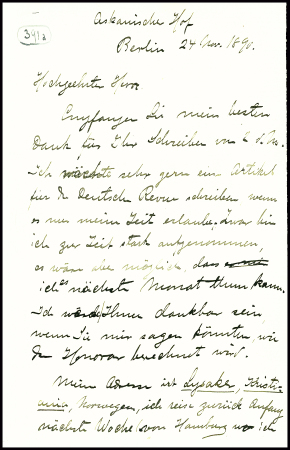 391a
Askanischer Hof
Berlin 24 Nov. 1890.
Hochgeehrter Herr
Empfangen Sie meinen besten
Dank für Ihr Schreiben vom 2 d. M.
Ich möchte sehr gern ein Artikel
für die Deutsche Revue schreiben wenn
es nur meine Zeit erlaube. Zwar bin
ich zur Zeit stark aufgenommen,
es wäre aber möglich, dass
ich es nächste Monat thun kann.
Ich werde Ihnen dankbar sein
wenn Sie mir sagen könnten, wie
der Honorar berechnet wird.
Meine Adresse ist Lysaker, Kristi-
ania, Norwegen, ich reise zurück Anfang
nächste Woche von Hamburg wo ich